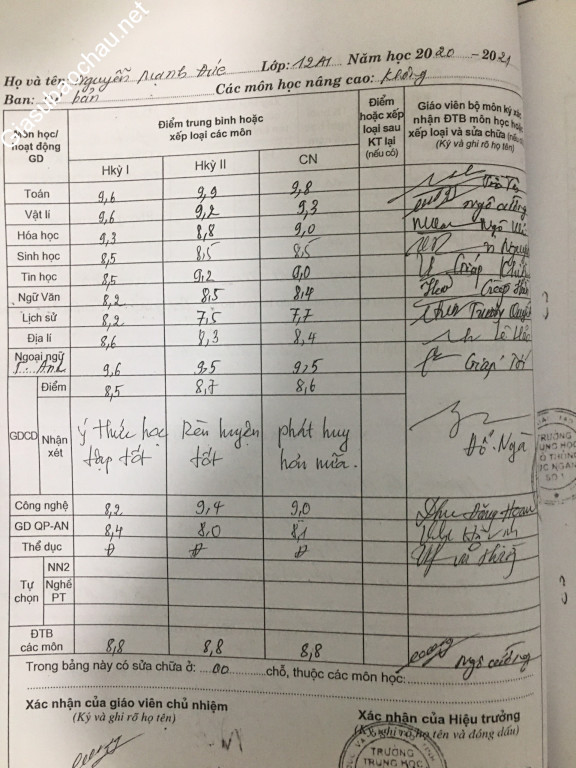 Giasubaochau.net
Họ và tên: Nguyễn Mạnh Đức Lớp: 12A1 Năm học 2020 - 2021
Ban: Cơ bản Các môn học nâng cao: Không
Môn học/ hoạt động GD
Điểm trung bình hoặc xếp loại các môn
Điểm hoặc xếp loại sau KT lại (nếu có)
Giáo viên bộ môn ký xác nhận ĐTB môn học hoặc xếp loại và sửa chữa (nếu có)
(Ký và ghi rõ họ tên)
Hkỳ I Hkỳ II CN
Toán 9,6 9,9 9,8
Vật lí 9,6 9,2 9,3 Ngô Cường
Hóa học 9,3 8,8 9,0
Sinh học 8,5 8,5 8,5
Tin học 8,5 9,2 9,0 Giáp
Ngữ Văn 8,2 8,5 8,4 Giáp
Lịch sử 8,2 7,5 7,7 Trương
Địa lí 8,6 8,3 8,4 Lê
Ngoại ngữ
T. Anh 9,6 9,5 9,5 Giáp
GDCD
Điểm 8,5 8,7 8,6
Nhận xét
ý thức học tập tốt
Rèn luyện tốt
phát huy hơn nữa.
Đỗ Nga
Công nghệ 8,2 9,4 9,0
GD QP-AN 8,4 8,0 8,1
Thể dục Đ Đ Đ
Tự chọn
NN2
Nghề PT
ĐTB các môn 8,8 8,8 8,8 Ngô Cường
Trong bảng này có sửa chữa ở: 00 chỗ, thuộc các môn học:
Xác nhận của giáo viên chủ nhiệm
(Ký và ghi rõ họ tên)
Xác nhận của Hiệu trưởng
(Ký, ghi rõ họ tên và đóng dấu)
TRƯỜNG
TRUNG HỌC
TRƯỜNG
TRUNG HỌC
SỐ 1